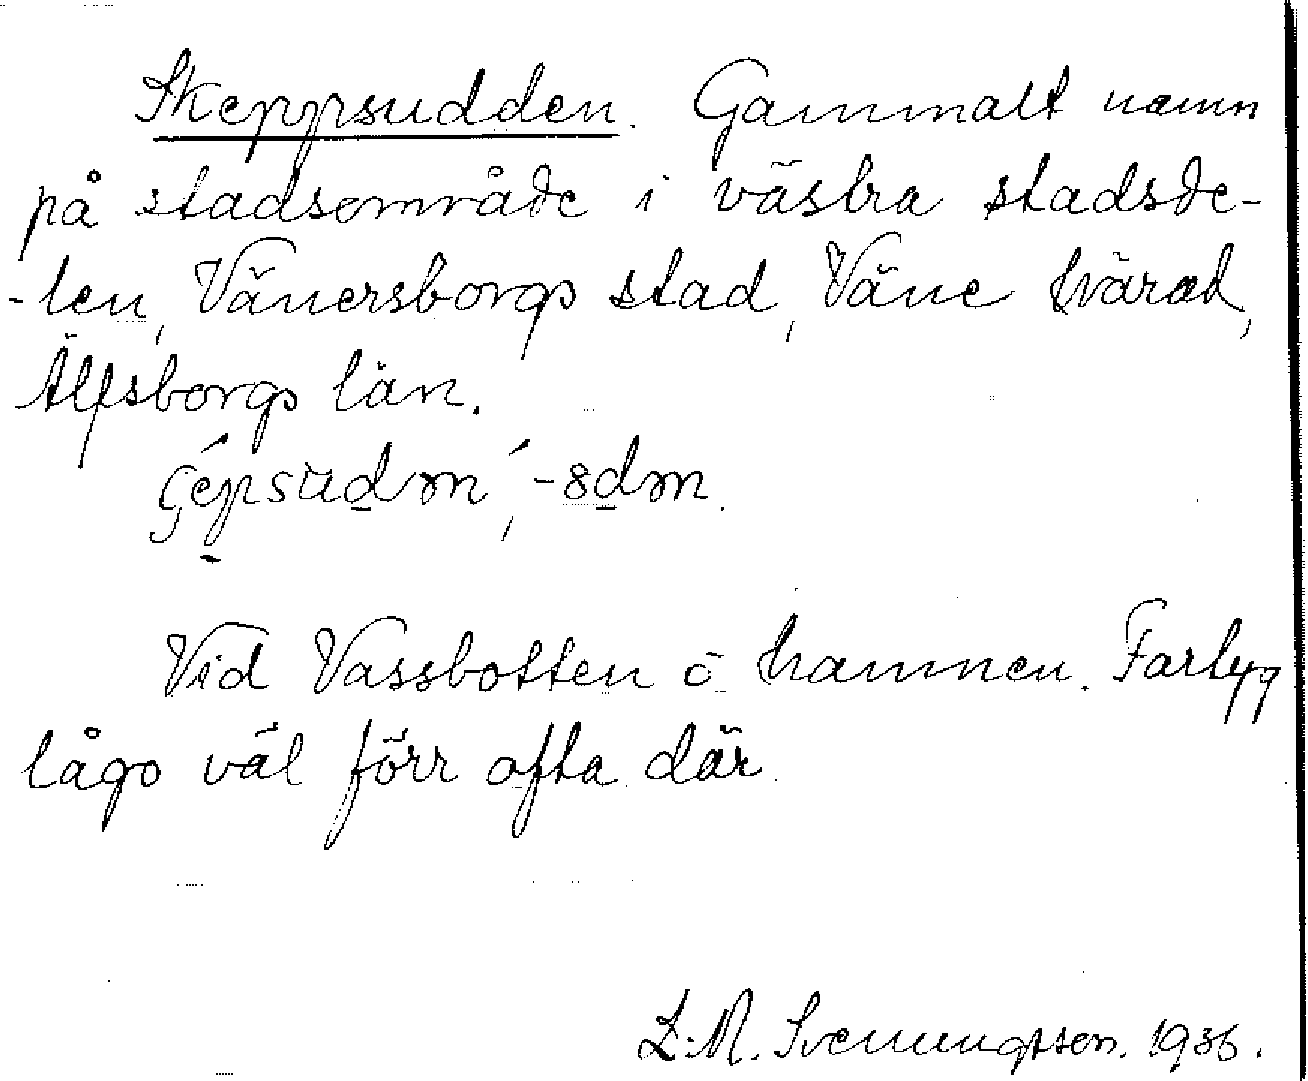 Skeppsudden. Gammalt namn
på stadsområde i västra stadsde-
-len, Vänersborgs stad, Väne härad,
Älfsborgs län.
Vid Vassbotten o hamnen. Fartyg
lågo väl förr ofta där.
L. M. Svenungsson. 1936.